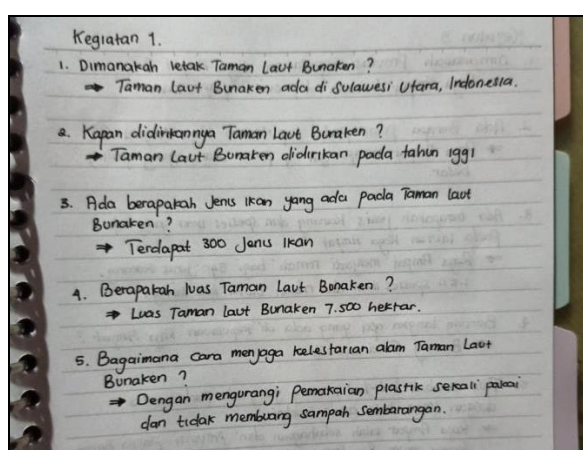 Kegiatan 1.
1. Dimanakah letak Taman Laut Bunaken ?
→ Taman Laut Bunaken ada di Sulawesi Utara, Indonesia.
2. Kapan didirikannya Taman Laut Bunaken ?
→ Taman Laut Bunaken didirikan pada tahun 1991
3. Ada berapakah Jenis Ikan yang ada pada Taman laut
Bunaken ?
→ Terdapat 300 Jenis Ikan
4. Berapakah luas Taman Laut Bonaken ?
→ Luas Taman Laut Bunaken 7.500 hektar.
5. Bagaimana Cara menjaga kelestarian alam Taman Laut
Bunaken ?
→ Dengan mengurangi Pemakaian plastik sekali pakai
dan tidak membuang sampah sembarangan.